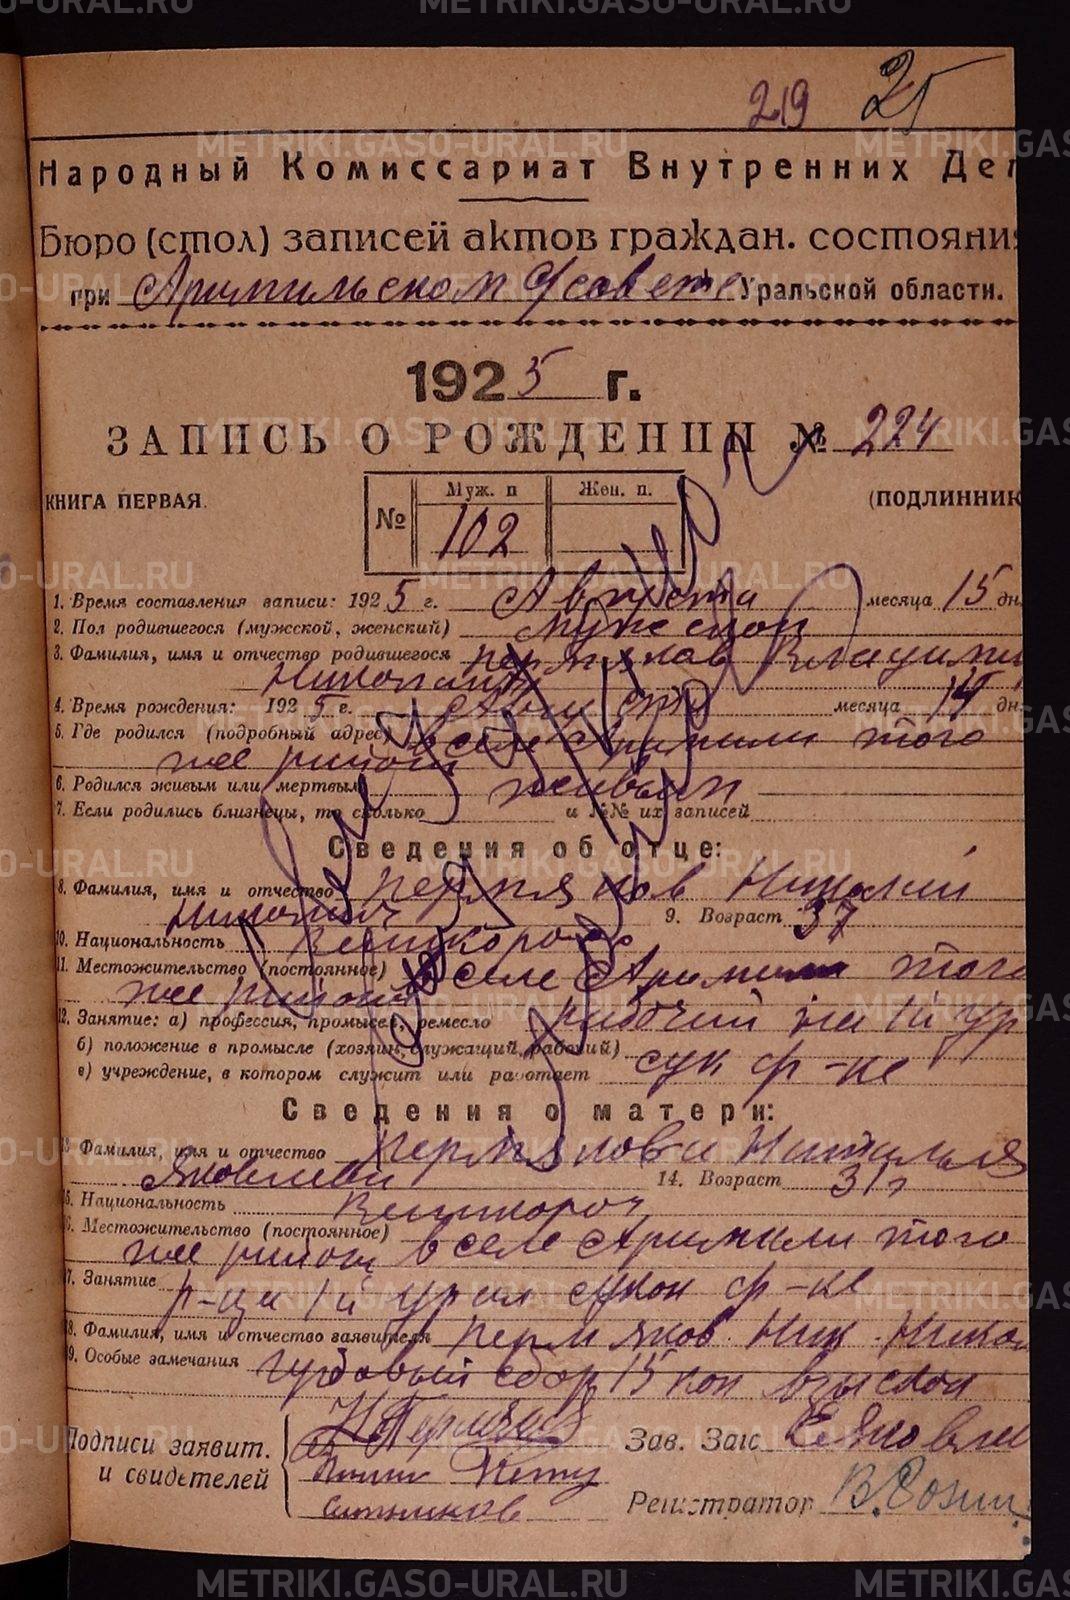 219 25
Народный Комиссариат Внутренних Дел
Бюро (стол) записей актов граждан. состояния
при Арамильском Уральской области.
1925 г.
ЗАПИСЬ О РОЖДЕНИИ № 224
КНИГА ПЕРВАЯ. (ПОДЛИННИК
№ Муж. п Жен. п.
102
1. Время составления записи: 1925 г. Августа месяца 15 дн.
2. Пол родившегося (мужской, женский) Мужеской
3. Фамилия, имя и отчество родившегося Пермяков Владими
Николаич
4. Время рождения: 1925 г. Августа месяца 14 дн.
5. Где родился (подробный адрес) в селе Арамили того
же района
6. Родился живым или мертвым живым
7. Если родились близнецы, то сколько и №№ их записей
Сведения об отце:
8. Фамилия, имя и отчество Пермяков Николай
Николаич 9. Возраст 37
10. Национальность Великоросс
11. Местожительство (постоянное) в селе Арамили того
же района
12. Занятие: а) профессия, промысел, ремесло рабочий на 1й ур
б) положение в промысле (хозяин, служащий, рабочий)
в) учреждение, в котором служит или работает сук ф-ке
Сведения о матери:
13 Фамилия, имя и отчество Пермякова Наталья
Яковлевна 14. Возраст 31 г
15. Национальность Великорос
16. Местожительство (постоянное)
же района в селе Арамили того
17. Занятие р-ца 1й урал сукон ф-ке
18. Фамилия, имя и отчество заявителя Пермяков Ник. Никол
19. Особые замечания гербовый сбор 15 коп взыскан
Подписи заявит.
и свидетелей
Н Пермяков
Ситников
Зав. Загс Е Яковле
Регистратор В.
METRIKI.GASO-URAL.RU